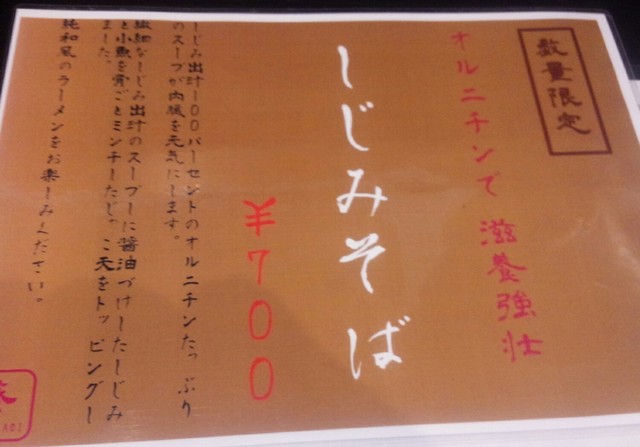 数量限定
オルニチンで 滋養強壮
しじみそば
¥700
しじみ出汁100パーセントのオルニチンたっぷり
のスープが内臓を元気にします。
繊細なしじみ出汁のスープーに醤油づけしたしじみ
と小魚を骨ごとミンチしたじゃこ天をトッピングー
ました。
純和風のラーメンをお楽しみください。